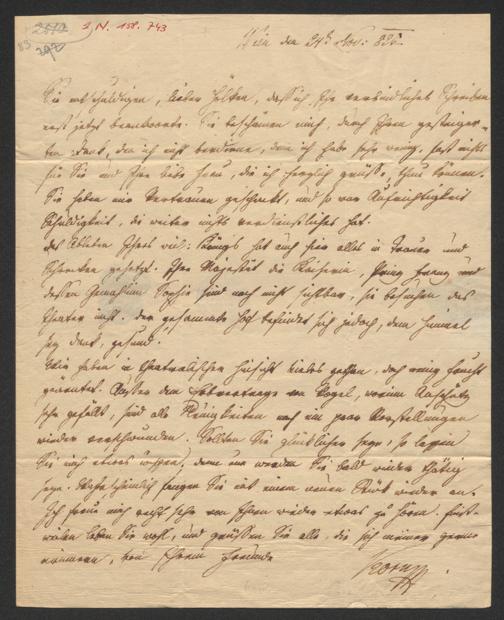 2612
I. N. 158.743
83
292
Wien den 24t Nov: 825.
Sie entschuldigen, lieber, daß ich Ihr verbindliches Schreiben
erst jetzt beantworte. Sie beschämen mich, durch Ihren gesteiger-
ten Dank, den ich nicht verdiene, denn ich habe sehr wenig, fast nichts
für Sie und Ihre liebe Frau, die ich herzlich grüße, thun können.
Sie haben mir Vertrauen geschenkt, und so war Aufrichtigkeit
Schuldigkeit, die weiter nichts verdienstliches hat.
Das Ableben Ihres Königs hat auch hier alles in Trauer und
Schrecken gesetzt. Ihre Majestät die Kaiserin, Franz und
dessen Gemahlin Sophie sind noch nicht sichtbar, sie besuchen das
Theater nicht. Der gesammte Hof befindet sich jedoch, dem Himmel
sey Dank, gesund.
Wir haben in theatralischer Hinsicht vieles gesehen, doch wenig Frucht
geerntet. Außer dem Erbvertrage von Vogel, worin Anschütz
sehr gefällt, sind alle Neuigkeiten nach ein paar Vorstellungen
wieder verschwunden. Sollten Sie glücklicher seyn, so lassen
Sie mich etwas wissen, denn nun werden Sie bald wieder thätig
seyn. Wahrscheinlich fangen Sie mit einem neuen Stück wieder an.
Ich freue mich recht sehr von Ihnen wieder etwas zu hören. Einst-
weilen leben Sie wohl, und grüßen Sie alle, die sich meiner gerne
erinnern, von Ihrem Freunde
Korn